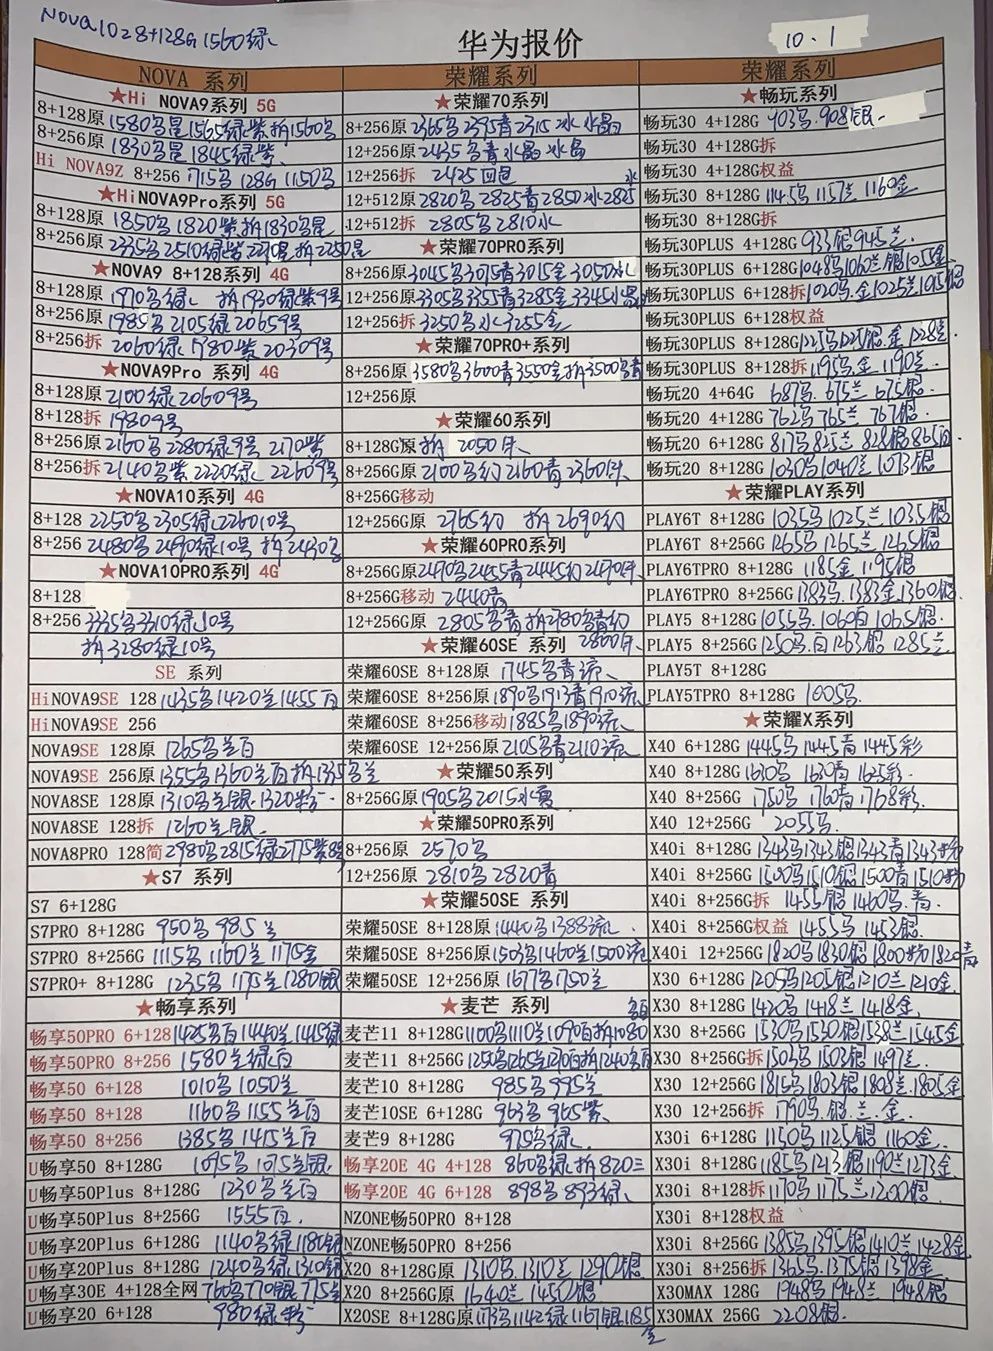 Nova10z 8+128G 1560绿
华为报价
10.1
NOVA 系列
★Hi NOVA9系列 5G
8+128原 1580乌星1565绿紫拆1560乌
8+256原 1830乌星1845绿紫
Hi NOVA9Z 8+256 1715乌 128G 1150乌
★HiNOVA9Pro系列 5G
8+128原 1850乌1820紫拆1830乌星
8+256原
★NOVA9 8+128系列 4G
8+128原 1970乌绿 拆1930绿紫9号
8+256原 1985乌2105绿20659号
8+256拆 2060绿1980紫20309号
★NOVA9Pro系列 4G
8+128原 2100绿20609号
8+128拆 19809号
8+256原 2160乌2280绿9号 2170紫
8+256拆 2140乌紫2220绿 22609号
★NOVA10系列 4G
8+128 2250乌2305绿226010号
8+256 2480乌2490绿10号 拆2430乌
★NOVA10PRO系列 4G
8+128
8+256 3335乌3310绿10号
拆3280绿10号
SE 系列
HiNOVA9SE 128 1435乌1420兰1455白
HiNOVA9SE 256
NOVA9SE 128原 1265乌兰白
NOVA9SE 256原 1355乌1360兰白拆1335乌兰
NOVA8SE 128原 1310乌兰银1320粉
NOVA8SE 128拆 1260兰银
NOVA8PRO 128简 2980乌2815绿2775紫8号
★S7 系列
S7 6+128G
S7PRO 8+128G 950乌 985兰
S7PRO 8+256G 1115乌1160兰1175金
S7PRO+ 8+128G 1235乌1175兰1280银
★畅享系列
畅享50PRO 6+128 1425乌白1440兰1445绿
畅享50PRO 8+256 1580兰绿白
畅享50 6+128 1010乌1050兰
畅享50 8+128 1160乌1155兰白
畅享50 8+256 1385乌1415兰白
U畅享50 8+128G 1095乌1075兰银
U畅享50Plus 8+128G 1230乌兰白
U畅享50Plus 8+256G 1555白
U畅享20Plus 6+128G 1140乌绿1180银
U畅享20Plus 8+128G 1240乌绿1310银
U畅享30E 4+128全网 760乌770银775兰
U畅享20 6+128 980绿粉
荣耀系列
★荣耀70系列
8+256原 2365乌2395青2315冰水晶
12+256原 2435乌青水晶冰岛
12+256拆 2425
12+512原 2820乌2825青2850冰
12+512拆 2805乌2810水
★荣耀70PRO系列
8+256原 3045乌3075青3015金3050水
12+256原 3305乌3355青3285金3345水晶
12+256拆 3250乌水3255金
★荣耀70PRO+系列
8+256原 3580乌3600青3550金拆3500乌青
12+256原
★荣耀60系列
8+128G原 拆 2050
8+256G原 2100乌幻2160青2360
8+256G移动
12+256G原 2765幻 拆2690幻
★荣耀60PRO系列
8+256G原 2490乌2455青2445幻2490
8+256G移动 2440青
12+256G原 2805乌青拆2780乌青幻
★荣耀60SE 系列
荣耀60SE 8+128原 1745乌青流
荣耀60SE 8+256原 1890乌1913青1910流
荣耀60SE 8+256移动 1885乌1890流
荣耀60SE 12+256原 2105乌青2110流
★荣耀50系列
8+256G原 1905乌2015水夏
★荣耀50PRO系列
8+256原 2570乌
12+256原 2810乌2820青
★荣耀50SE 系列
荣耀50SE 8+128原 1440乌1388流
荣耀50SE 8+256原 1503乌1460兰1500流
荣耀50SE 12+256 1677乌1750兰
★麦芒 系列
麦芒11 8+128G 1100乌1110兰1090白拆1080
麦芒11 8+256G 1250乌1265兰1270白拆1240乌白
麦芒10 8+128G 985乌995兰
麦芒10SE 6+128G 963乌965紫
麦芒9 8+128G 975乌绿
畅享20E 4G 4+128 860乌绿拆820兰
畅享20E 4G 6+128 898乌893绿
NZONE畅50PRO 8+128
NZONE畅50PRO 8+256
X20 8+128G原 1310乌1310兰1290银
X20 8+256G原 1640兰 1450银
X20SE 8+128G原 1173乌1142绿1167银1185金
荣耀系列
★畅玩系列
畅玩30 4+128G 903乌.908银
畅玩30 4+128G拆
畅玩30 4+128G权益
畅玩30 8+128G 1145乌1157兰1160金
畅玩30 8+128G拆
畅玩30PLUS 4+128G 933银945兰
畅玩30PLUS 6+128G 1048乌1060兰银1055金
畅玩30PLUS 6+128拆 1020乌.金1025兰1015银
畅玩30PLUS 6+128权益
畅玩30PLUS 8+128G 1225乌1225银.金1228兰
畅玩30PLUS 8+128拆 1195乌金1190兰
畅玩20 4+64G 687乌.675兰675银
畅玩20 4+128G 762乌765兰767银
畅玩20 6+128G 817乌825兰828银865白
畅玩20 8+128G 1030乌1040兰1073银
★荣耀PLAY系列
PLAY6T 8+128G 1035乌1025兰1035银
PLAY6T 8+256G 1265乌1265兰1265银
PLAY6TPRO 8+128G 1185金1195银
PLAY6TPRO 8+256G 1383乌.1383金1360银
PLAY5 8+128G 1055乌.1060白1065银
PLAY5 8+256G 1250乌.白1263银1285兰
PLAY5T 8+128G
PLAY5TPRO 8+128G 1005乌
★荣耀X系列
X40 6+128G 1445乌1445青1445彩
X40 8+128G 1630乌1630青1645彩
X40 8+256G 1750乌1760青1768彩
X40 12+256G 2055乌
X40i 8+128G 1343乌1343银1343青1343粉
X40i 8+256G 1500乌1510银1500青1510粉
X40i 8+256G拆 1455银1460乌.青
X40i 8+256G权益 1455乌1453银
X40i 12+256G 1820乌1830银1800粉1820青
X30 6+128G 1205乌1205银1210兰1210金
X30 8+128G 1420乌1418兰1418金
X30 8+256G 1530乌1530银1538兰1545金
X30 8+256G拆 1503乌1503银1497兰
X30 12+256G 1815乌1803银1808兰1805金
X30 12+256拆 1790乌.银.兰.金
X30i 6+128G 1150乌1125银1160金
X30i 8+128G 1185乌1213银1190兰1273金
X30i 8+128拆 1170乌1175兰1200银
X30i 8+128权益
X30i 8+256G 1385乌1395银1410兰1428金
X30i 8+256拆 1365乌.1375银1398金
X30MAX 128G 1948乌1948兰1948银
X30MAX 256G 2208银